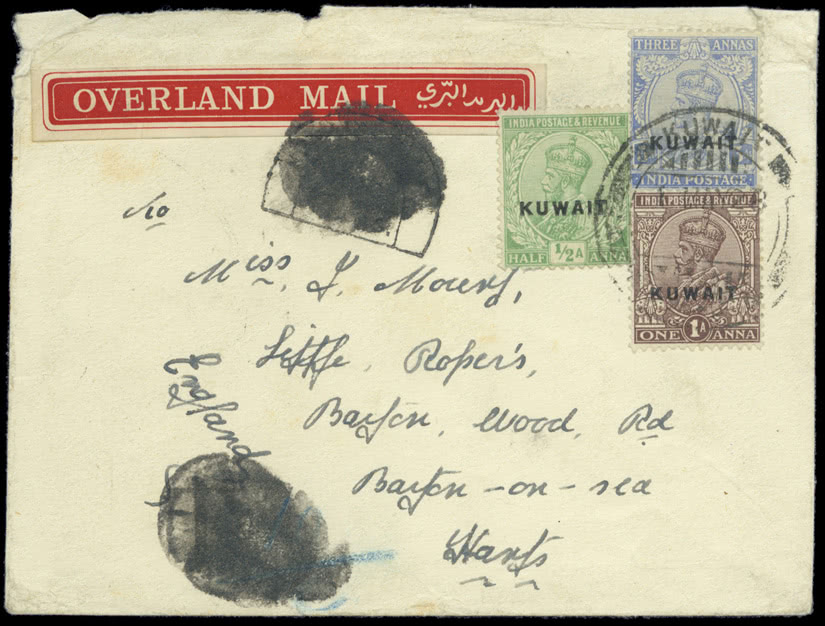 THREE ANNAS
KUWAIT
INDIA POSTAGE
OVERLAND MAIL البريد البري
INDIA POSTAGE & REVENUE
KUWAIT
HALF 1/2 A ANNA
KUWAIT
INDIA POSTAGE & REVENUE
KUWAIT
ONE 1A ANNA
To
Miss. J.
Little Roper's,
Barton, Wood, Rd
Barton-on-sea
Hants
England